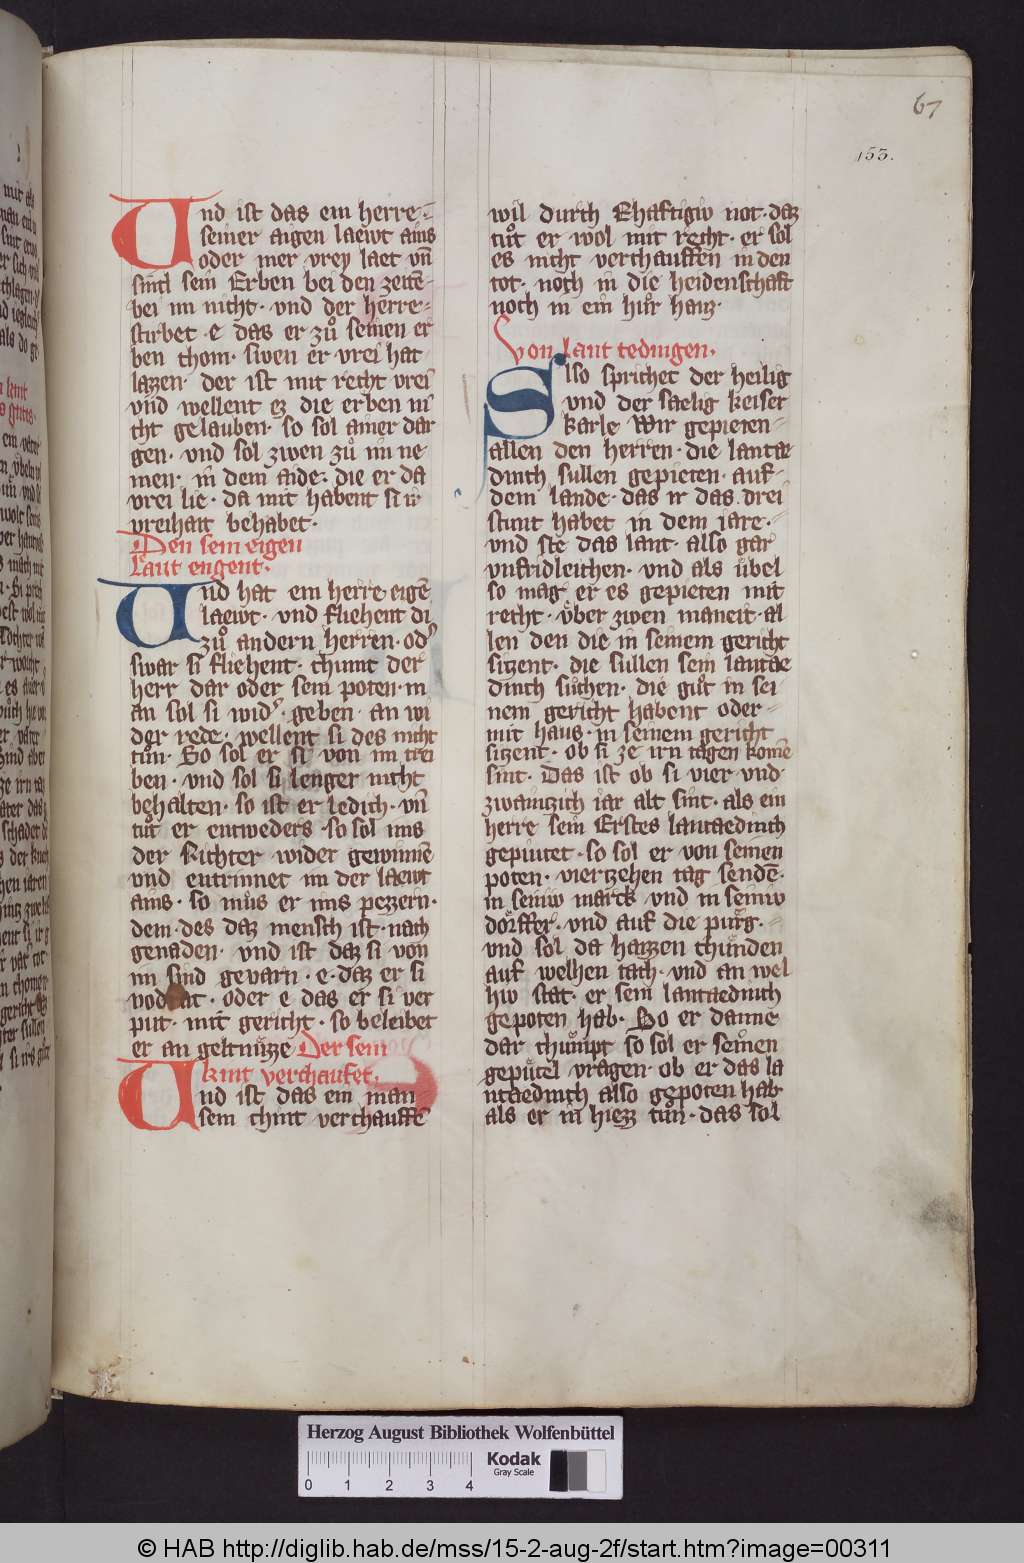 67
153.
Und ist das ein herre
seiner aigen laewt ains
oder mer vrey laet vn̄
sintl sein Erben bei den zeitē
bei im nicht · vnd der herre
stirbet · e das er zů seinen er
ben chom · swen er vrei hat
lazzen · der ist mit recht vrei
vnd wellent ez die erben ni
cht gelauben · so sol ainer dar
gen · vnd sol zwen zů im ne
men · in dem ande · die er da
vrei lie · da mit habent si ir
vreihait behabet ·
Den sein eigen
laut engent ·
Und hat ein herre eigē
laewt · vnd fliehent di
zů andern herren · od᾽
swar si fliehent · chumt der
herr dar oder sein poten · in
an sol si wid᾽ geben · an wi
der rede · wellent si des nicht
tůn · So sol er si von im trei
ben · vnd sol si lenger nicht
behalten · so ist er ledich · vn̄
tůt er entweders · so sol ims
der Richter wider gewinnē
vnd entrinnet im der laewt
ains · so můs er ims pezzern ·
dem · des daz mensch ist · nach
genaden · vnd ist daz si von
im sind gevarn · e · daz er si
vodrat · oder e das er si ver
put · mit gericht · so beleibet
er an geltnůzze Der sein
kint verchaufet ·
Und ist das ein man
sein chint verchauffē
wil durch Ehaftigiv not · daz
tůt er wol mit recht · er sol
es nicht verchauffen in den
tot · noch in die heidenschaft
noch in ein hůr haus ·
Von lant tedingen ·
Also sprichet der heilig
vnd der saelig keiser
karle Wir gepieten
allen den herren · die lantae
dinch sullen gepieten · auf
dem lande · das ir das drei
stunt habet in dem iare ·
vnd ste das lant · also gar
vnfridleichen · vnd als ůbel
so mag er es gepieten mit
recht · ůber zwen maneit · al
len den die in seinem gericht
sitzent · die sullen sein lantae
dinch sůchen · die gůt in sei
nem gericht habent oder
mit haus · in seinem gericht
sitzent · ob si ze irn tagen komē
sint · Das ist ob si vier vnd
zwaintzich iar alt sint · als ein
herre sein Erstes lantaedinch
gepiutet · so sol er von seinen
poten · viertzehen tag sendē ·
in seiniv marck vnd in seiniv
dörffer · vnd auf die purg ·
vnd sol da hazzen chünden
auf welhen tach · vnd an wel
hiv stat · er sein lantaedinch
gepoten hab · So er danne
dar chůmpt so sol er seinen
gepůtel vragen · ob er das la
ntaedinch also gepoten hab
als er in hiezz tůn · das sol
Herzog August Bibliothek Wolfenbüttel
0 1 2 3 4
Kodak
Gray Scale
© HAB http://diglib.hab.de/mss/15-2-aug-2f/start.htm?image=00311